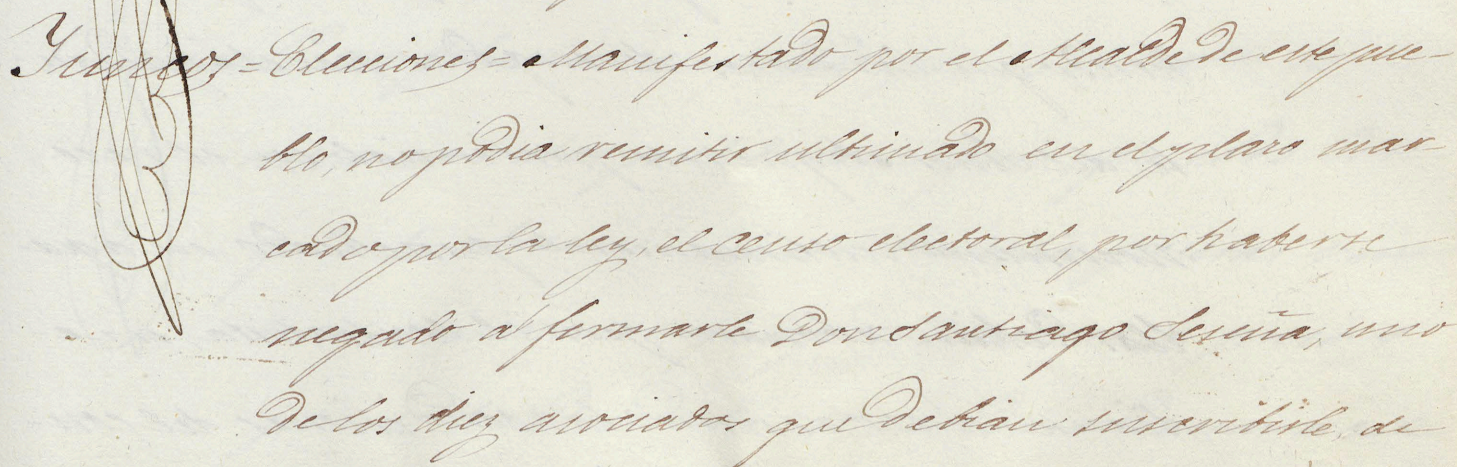 Yuncos = Elecciones = Manifestado por el Alcalde de este pue-
blo, no podia remitir ultimado en el plazo mar-
cado por la ley, el censo electoral, por haberse
negado á firmarle Don Santiago Seseña, uno
de los diez asociados que debian suscribirle, de